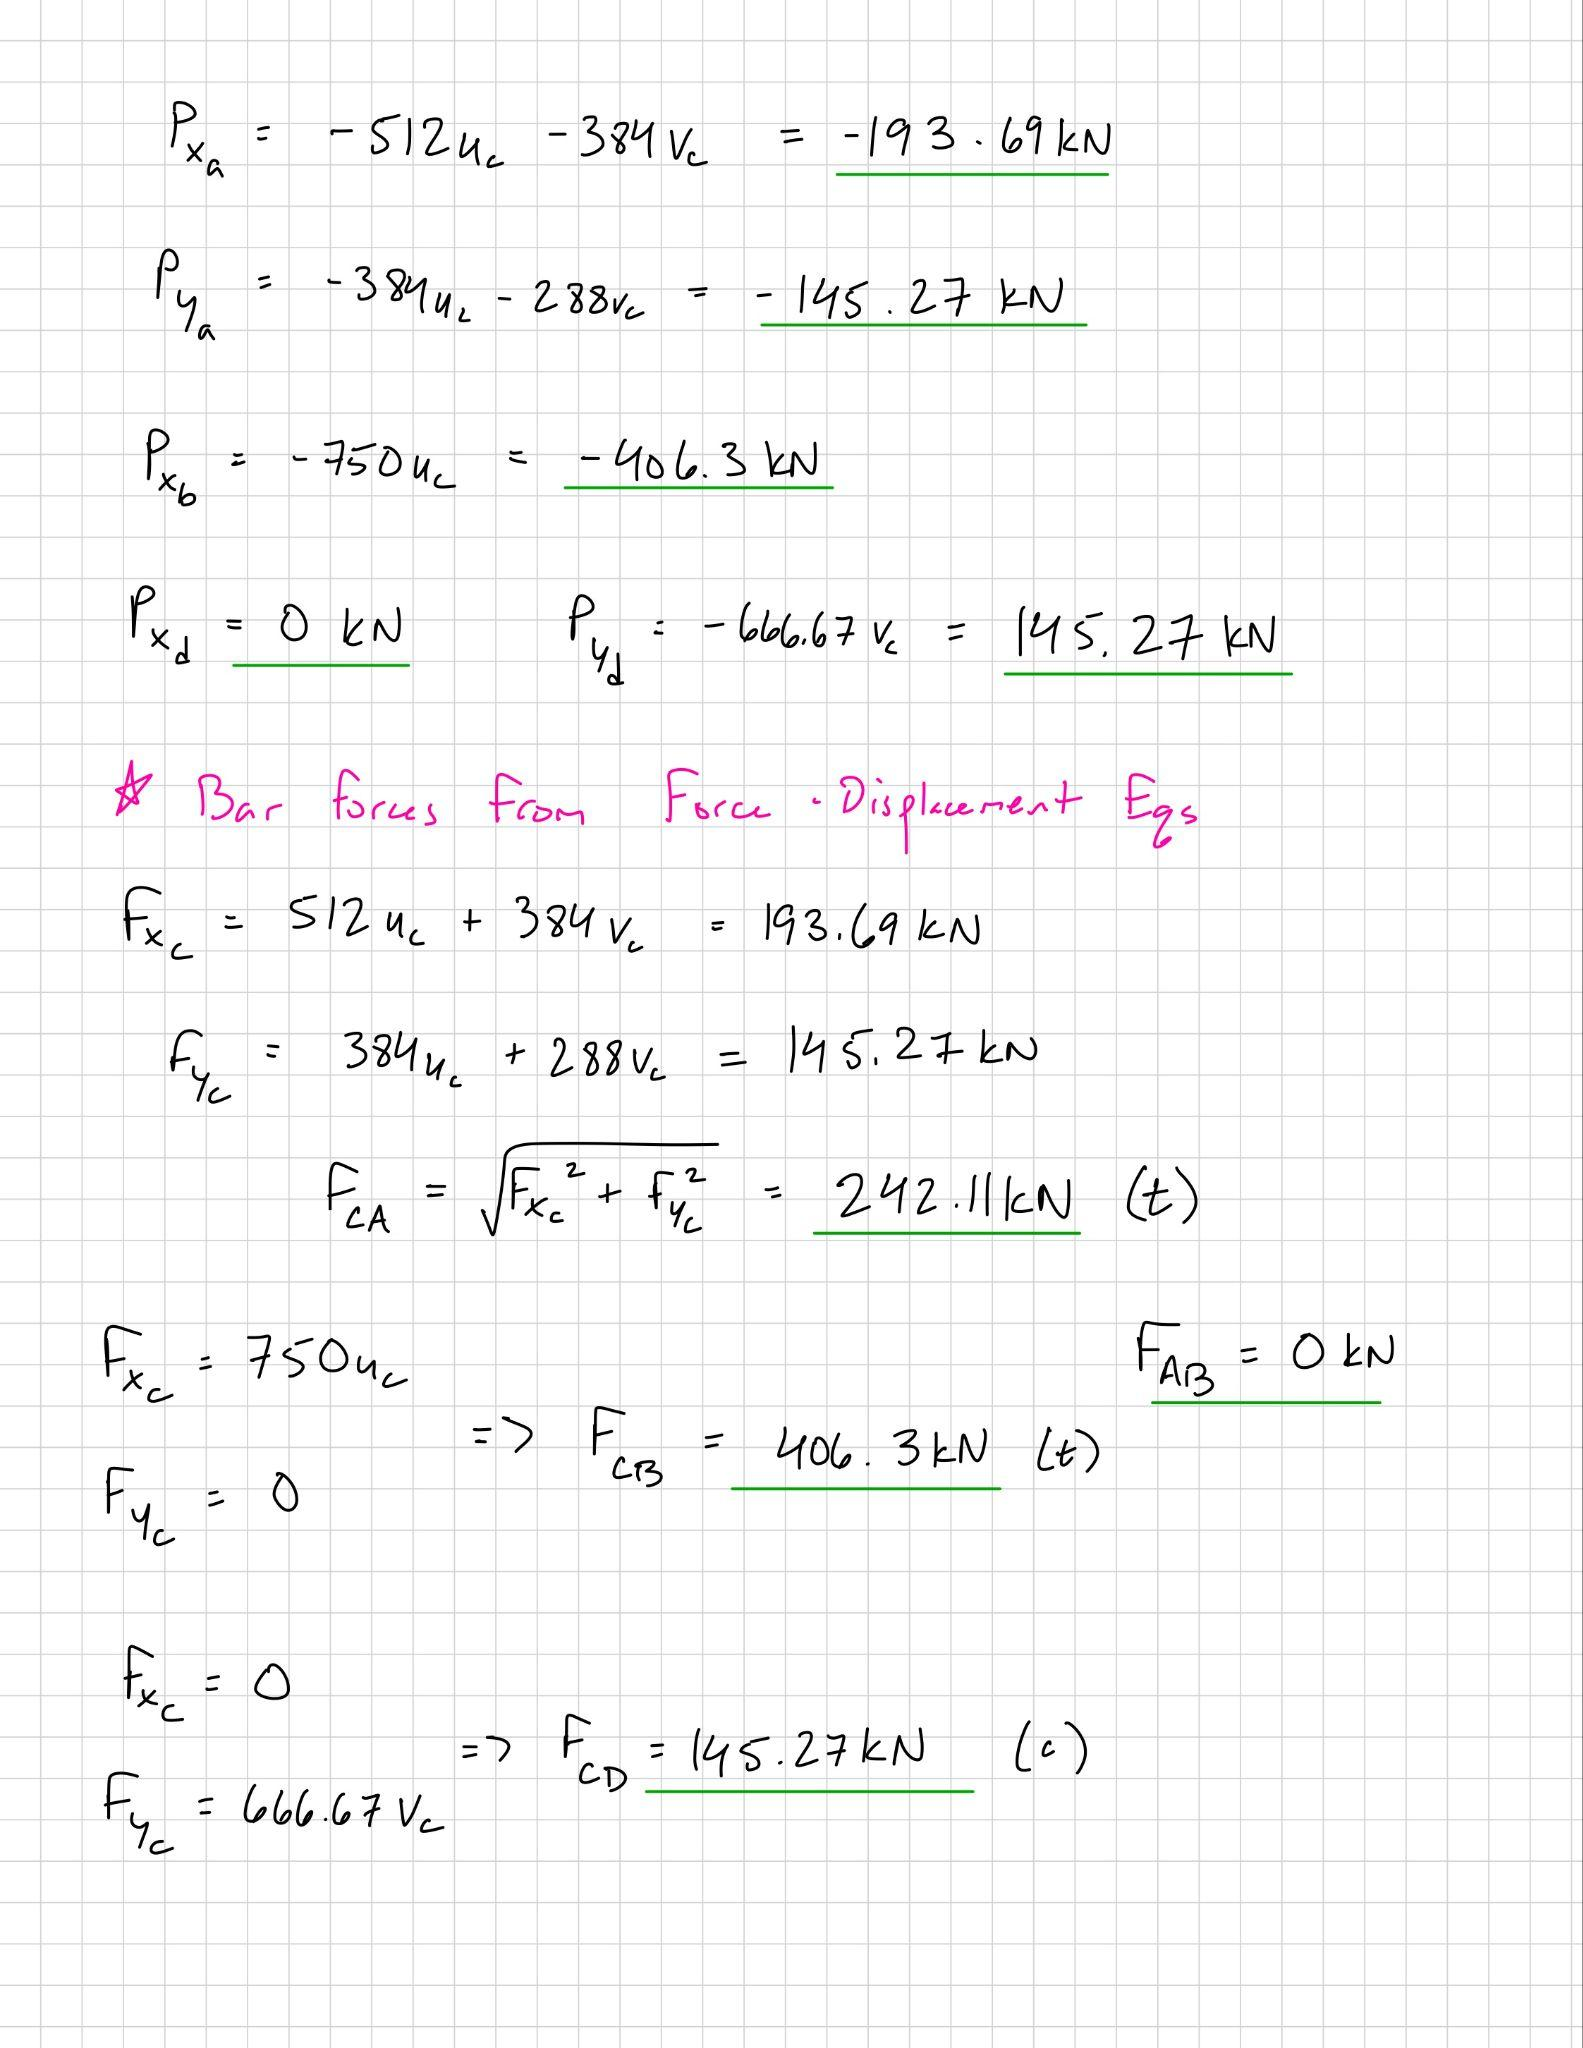 P_xa = -512u_c -384v_c = -193.69kN
P_ya = -384u_c - 288v_c = -145.27 kN
P_xb = -750u_c = -406.3 kN
P_xd = 0 kN P_yd = -666.67 v_c = 145.27 kN
☆ Bar forces from Force-Displacement Eqs
F_xc = 512u_c + 384v_c = 193.69 kN
F_yc = 384u_c + 288v_c = 145.27 kN
F_CA = √(F_xc² + F_yc²) = 242.11kN (t)
F_xc = 750u_c
F_AB = 0 kN
=> F_CB = 406.3kN (t)
F_yc = 0
F_xc = 0
=> F_CD = 145.27kN (c)
F_yc = 666.67 v_c